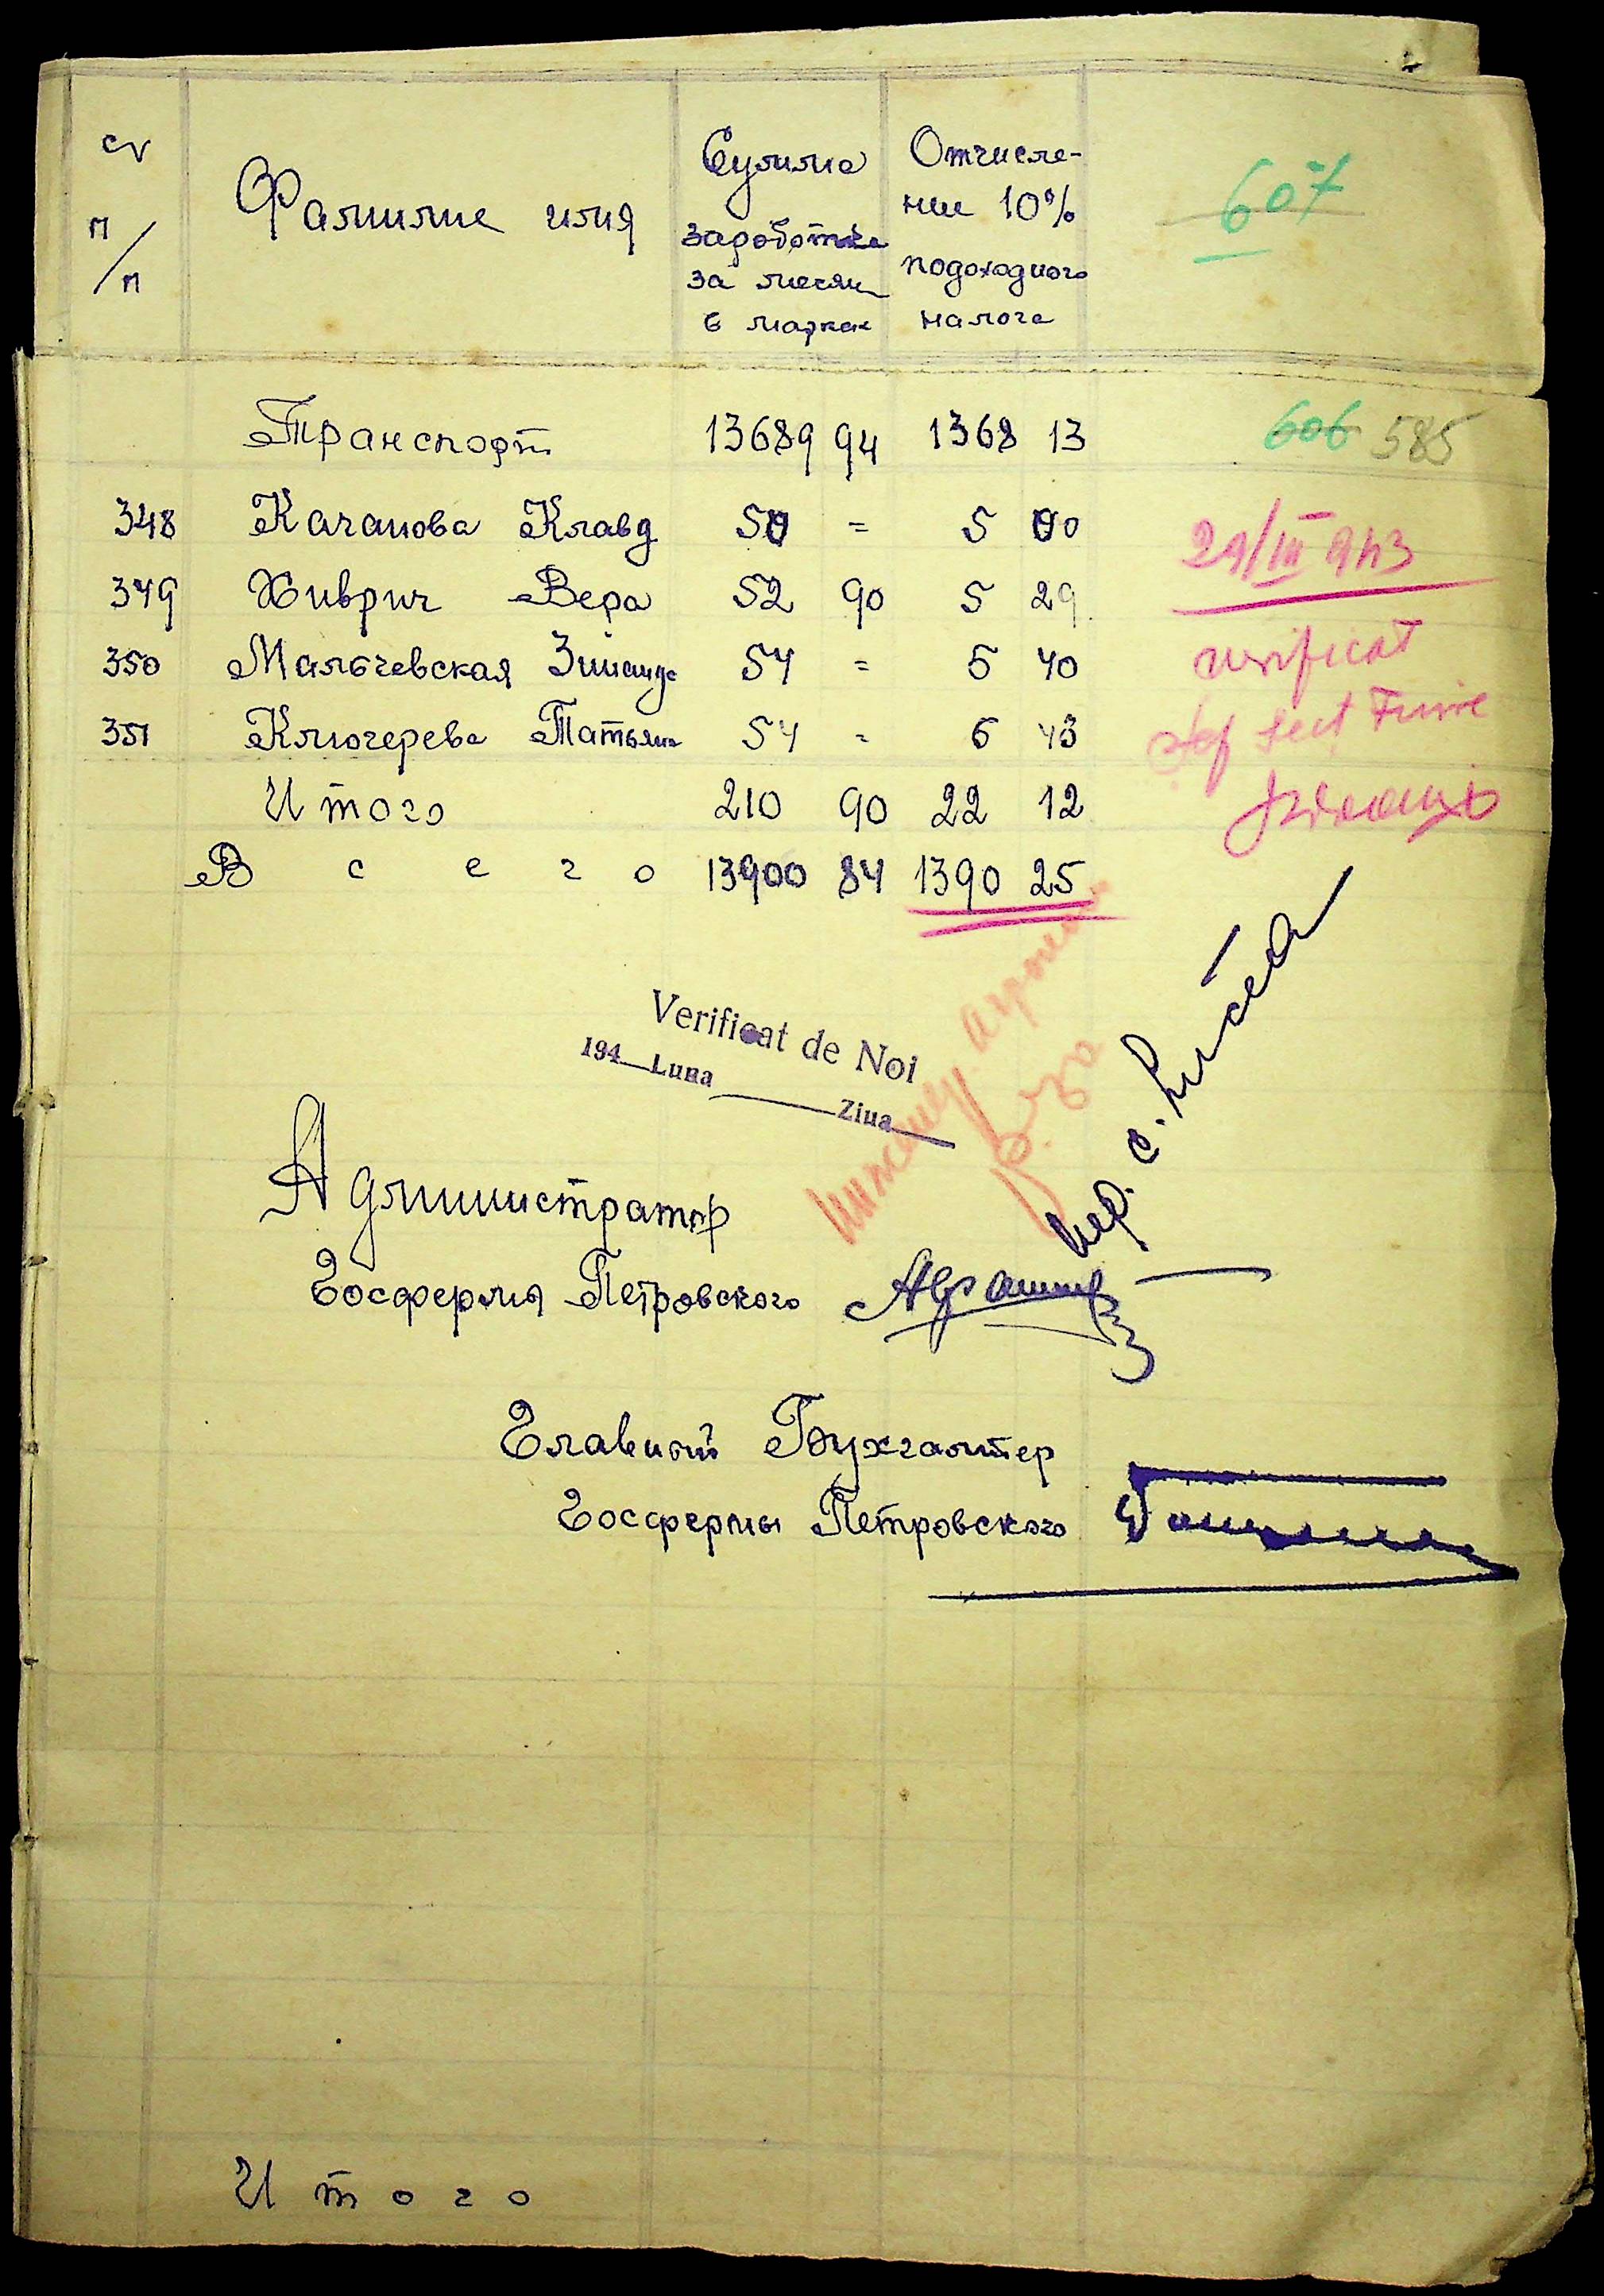 № п/п Фамилие имя Сумма заработка за месяц в марках Отчисление 10% подоходного налога
607
Транспорт 13689 94 1368 13
606 585
348 Качанова Клавд 50 = 5 00
29/III 943
349 Хиврич Вера 52 90 5 29
350 Мальчевская Зинаид 54 = 5 40
verificat
351 Ключерева Татьяна 54 = 6 43
Șef Sect
Итого 210 90 22 12
Всего 13900 84 1390 25
Verificat de Noi
194 Luna Ziua
Администратор
Госфермы Петровского
Главный Бухгалтер
Госфермы Петровского
Итого